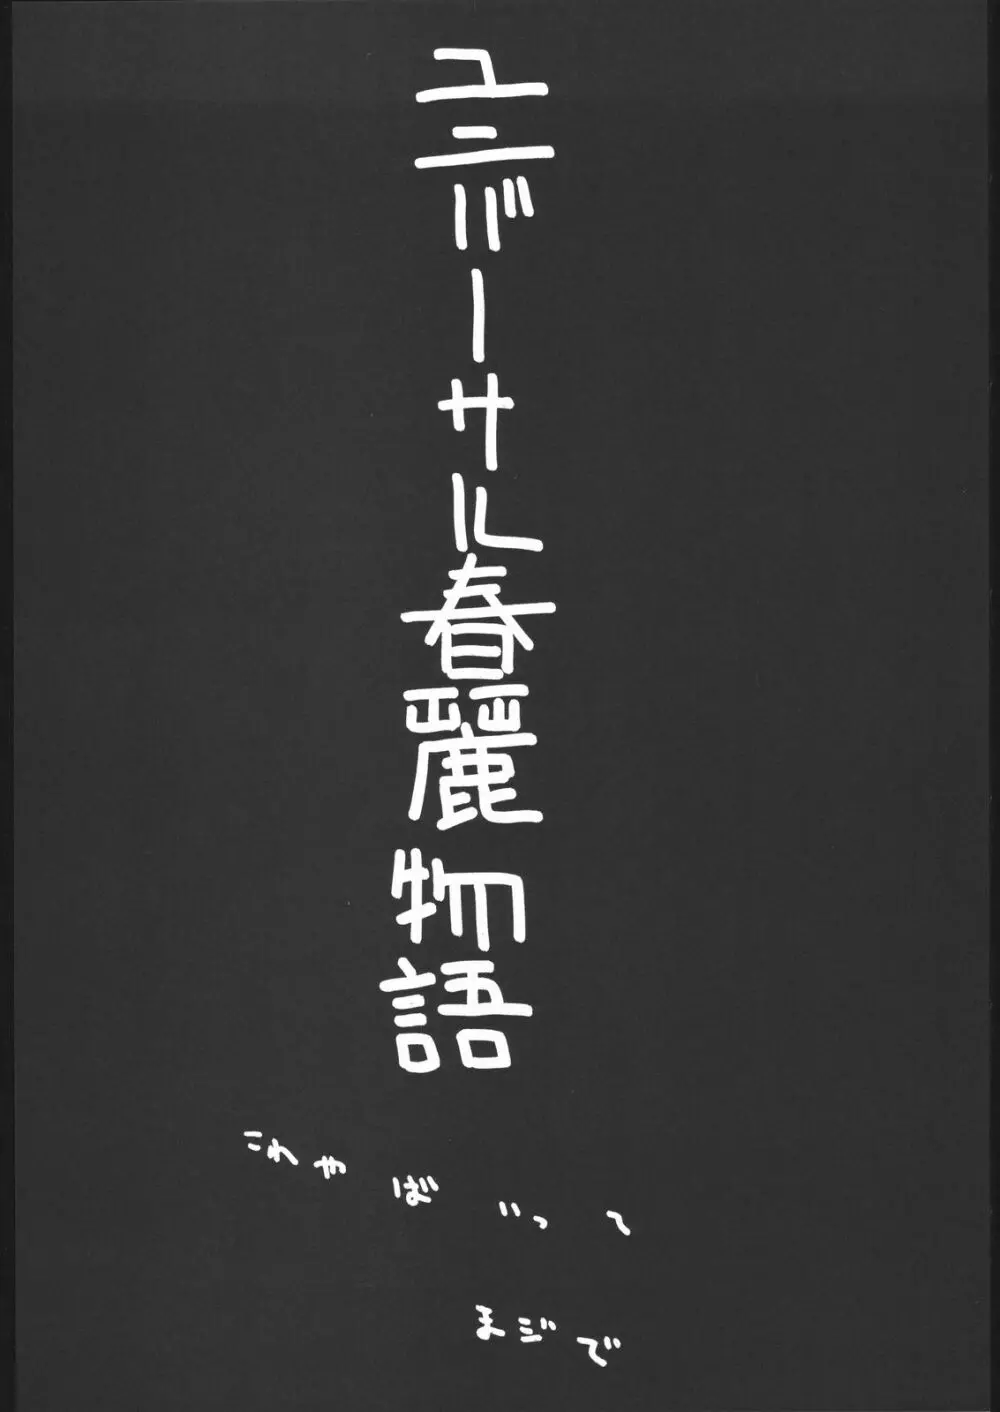 ユニバーサル春麗物語
これやばいって
まジで